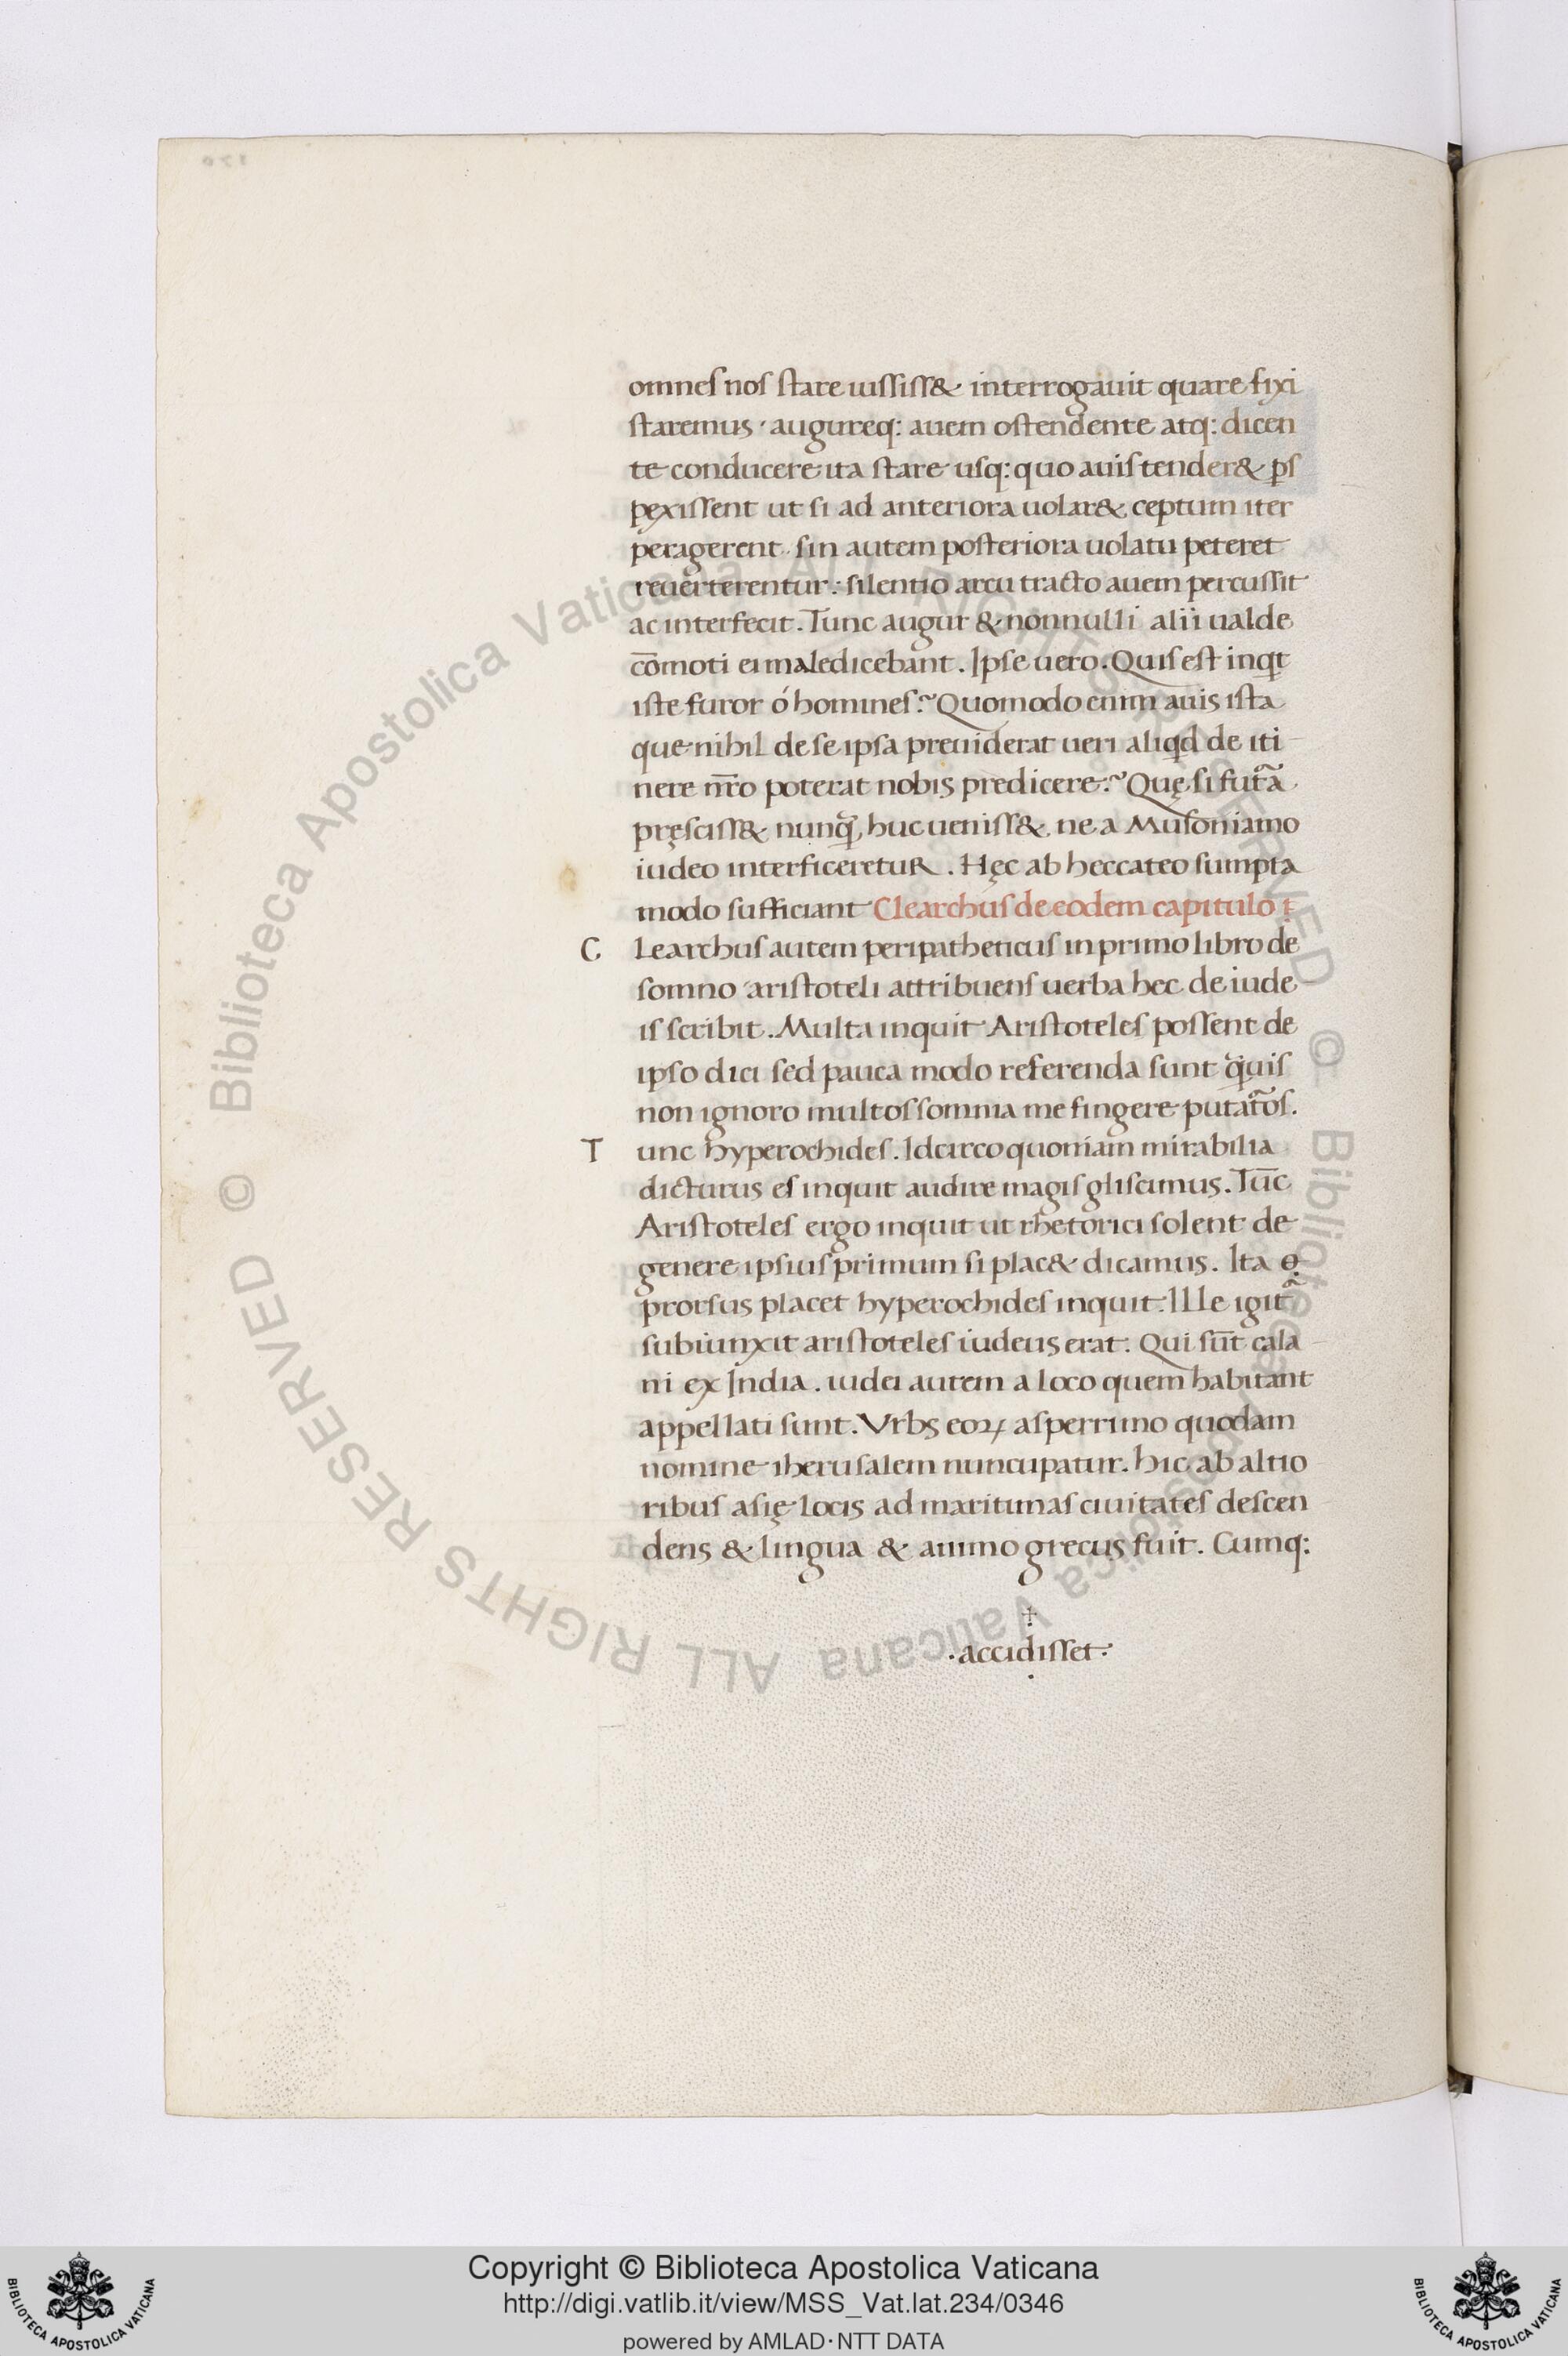 omnes nos stare iussiss& interrogauit quare fixi
staremus · augureq: auem ostendente atq: dicen
te conducere ita stare usq: quo auis tender& ꝓs
pexissent ut si ad anteriora uolar& ceptum iter
peragerent · sin autem posteriora uolatu peteret
reuerterentur : silentio arcu tracto auem percussit
ac interfecit. Tunc augur & nonnulli alii ualde
cōmoti ei maledicebant. Ipse uero. Quis est inqt
iste furor ó homines? Quomodo enim auis ista
que nihil de se ipsa preuiderat ueri aliqd de iti
nere nr̄o poterat nobis predicere? Quę si futa᷈
pręsciss& nunq̄ huc ueniss& ne a Musoniamo
iudeo interficeretur. Hęc ab heccateo sumpta
modo sufficiant Clearchus de eodem capitulo :
C Learchus autem peripatheticus in primo libro de
somno aristoteli attribuens uerba hec de iude
is scribit. Multa inquit Aristoteles possent de
ipso dici sed pauca modo referenda sunt q̄uis
non ignoro multos somnia me fingere putatos᷈.
T unc hyperochides. Idcirco quoniam mirabilia
dicturus es inquit audire magis gliscimus. Tūc
Aristoteles ergo inquit ut rhetorici solent de
genere ipsius primum si plac& dicamus. Ita
prorsus placet hyperochides inquit. Ille igit᷈
subiunxit aristoteles iudeus erat. Qui sūt cala
ni ex India. iudei autem a loco quem habitant
appellati sunt. Vrbs eoꝝ asperrimo quodam
nomine iherusalem nuncupatur. hic ab altio
ribus asię locis ad maritimas ciuitates descen
dens & lingua & animo grecus fuit. Cumq:
· accidisset ·
© Biblioteca Apostolica Vaticana ALL RIGHTS RESERVED © Biblioteca Apostolica Vaticana ALL RIGHTS RESERVED
Copyright © Biblioteca Apostolica Vaticana
http://digi.vatlib.it/view/MSS_Vat.lat.234/0346
powered by AMLAD·NTT DATA
BIBLIOTECA APOSTOLICA VATICANA
BIBLIOTECA APOSTOLICA VATICANA